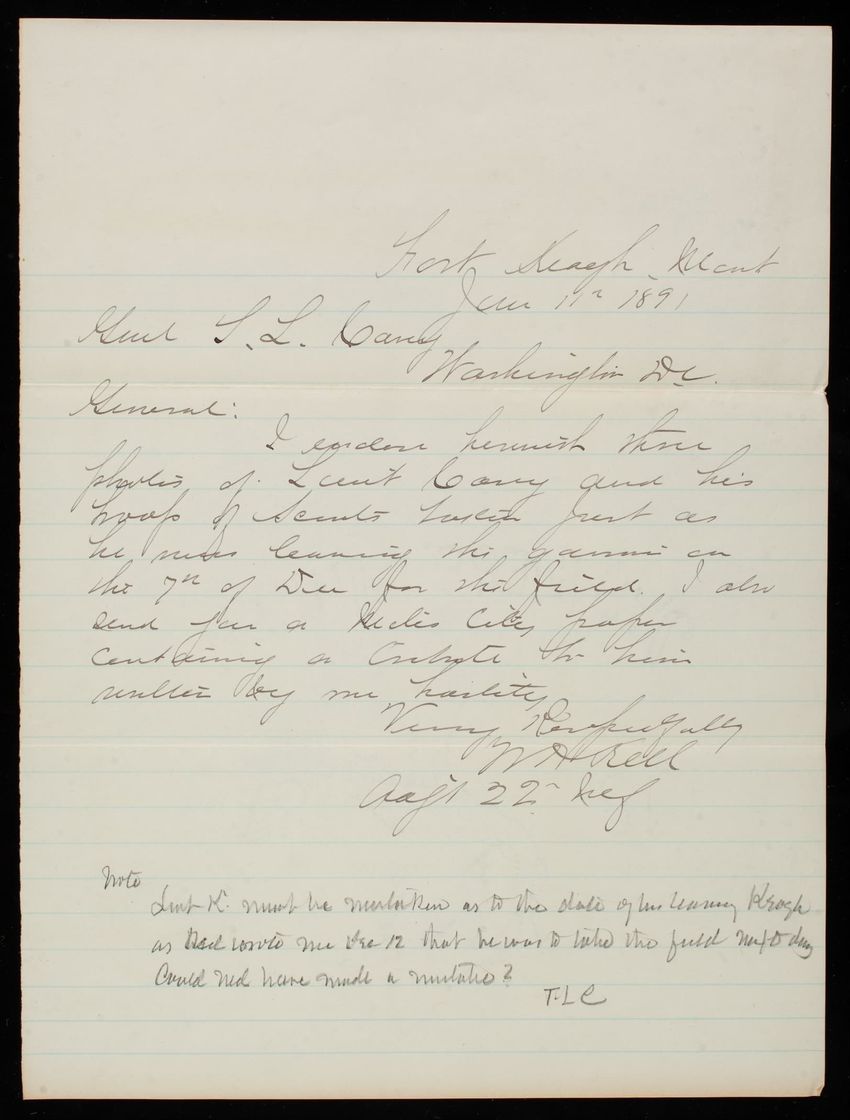 Fort Keogh, Mont
Jany 11th 1891
Genl T. L. Casey
Washington D.C.
General:
I enclose herewith three
photos of Lieut Casey and his
troop of Scouts taken just as
he was leaving the garrison on
the 7th of Dec for the field. I also
send you a Miles City paper
containing a tribute to him
written by me hastily
Very Respectfully
W H Kell
Adjt 22d Inf
Note
Lieut K. must be mistaken as to the date of his leaving Keogh
as Ned wrote me Dec 12 that he was to take the field next day
Could Ned have made a mistake?
T-L C